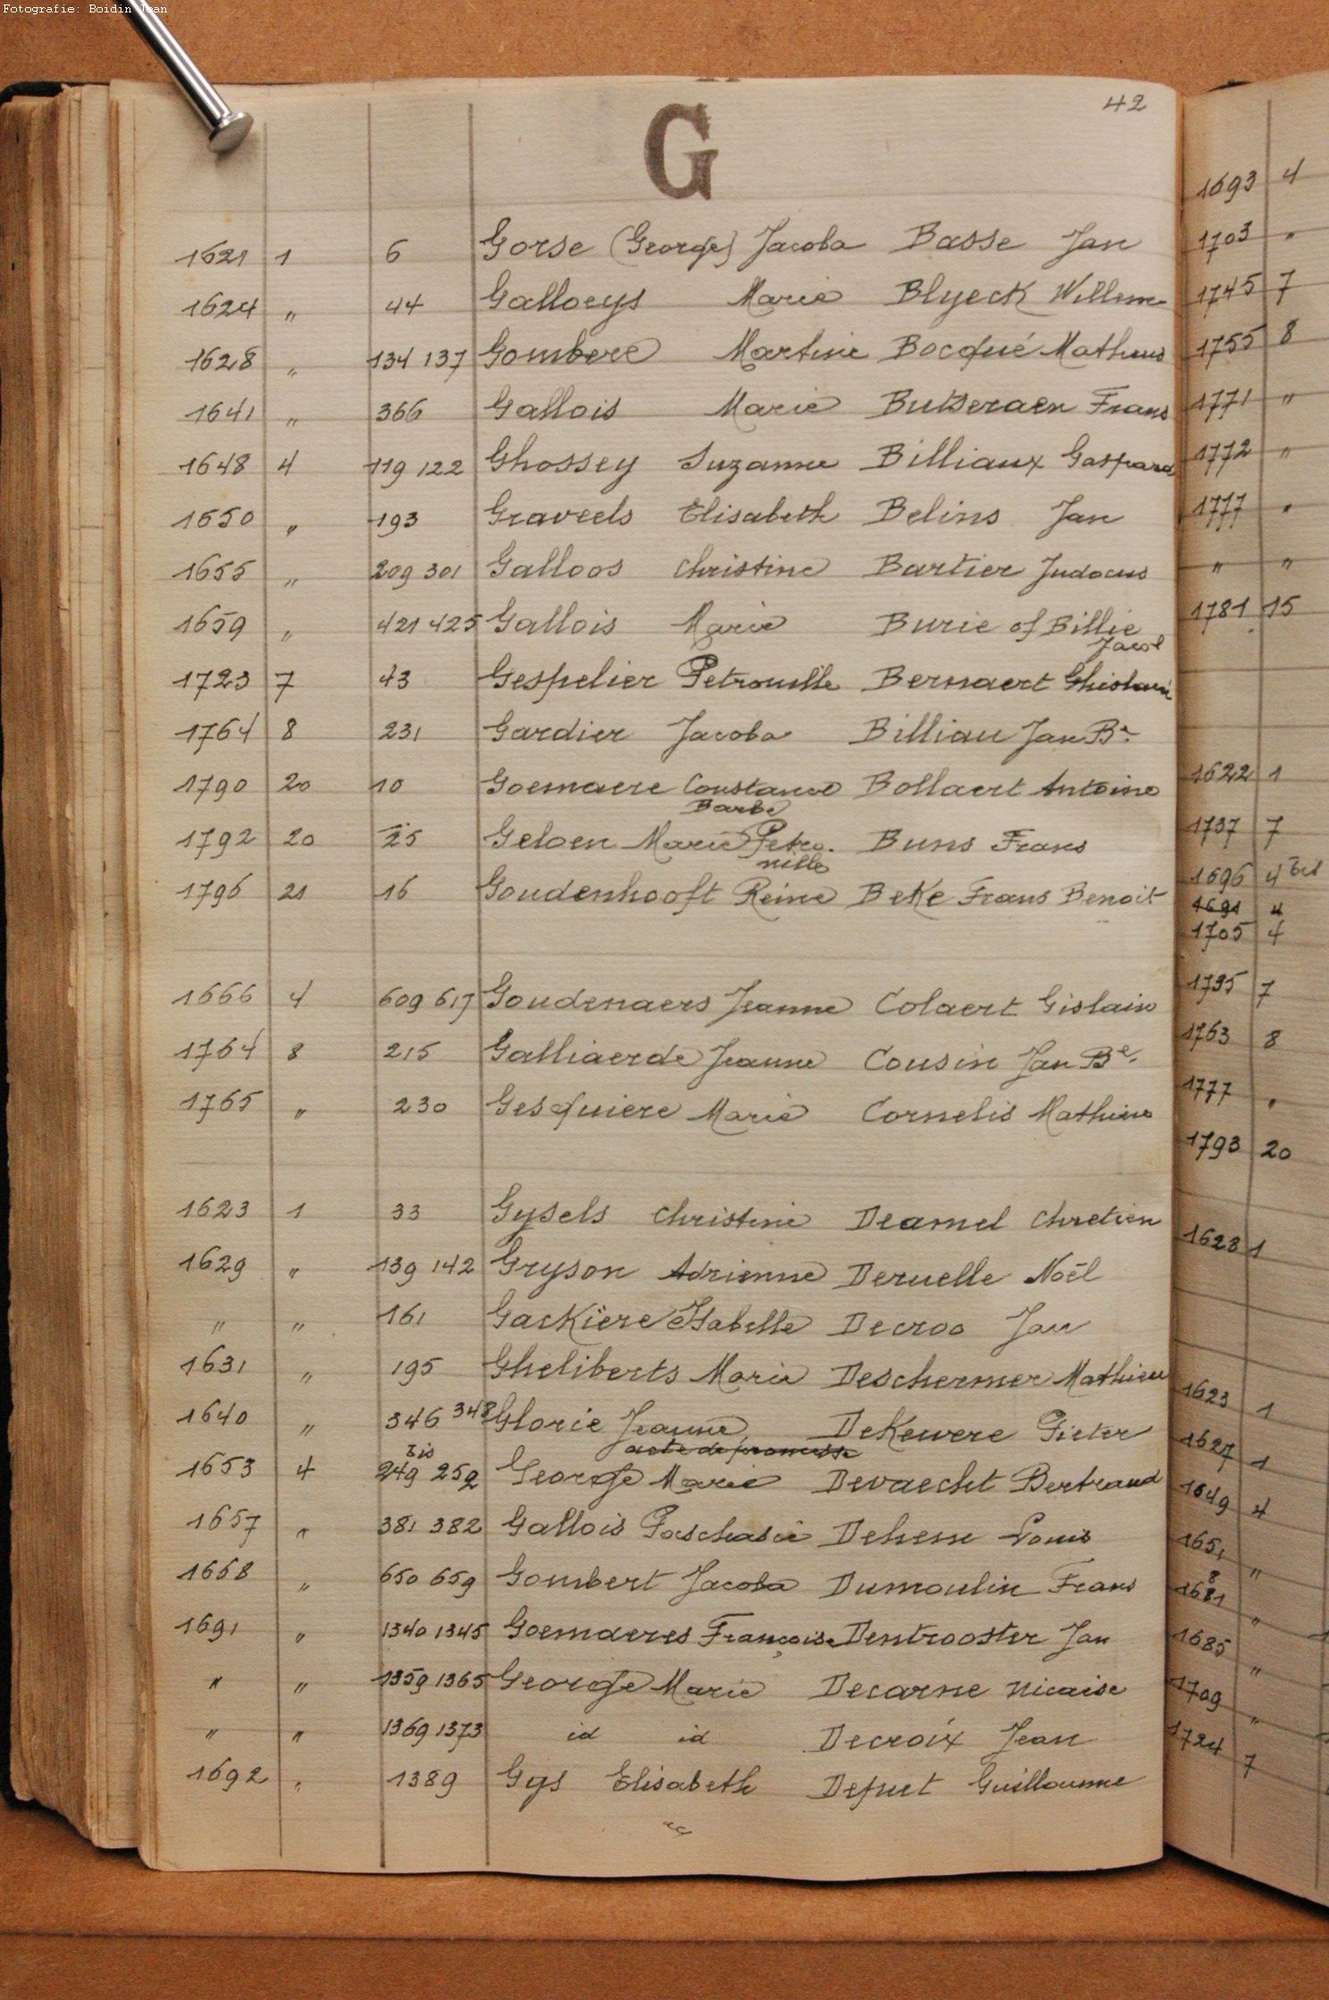 Fotografie: Boidin Joan
42
G
1621 1 6 Gorse (George) Jacoba Basse Jan
1624 " 44 Galloeys Marie Blyeck Willem
1628 " 134 137 Gombere Martine Bocqué Matheus
1641 " 366 Gallois Marie Butseraen Frans
1648 4 119 122 Ghossey Suzanne Billiaux Gaspard
1650 " 193 Graveels Elisabeth Belins Jan
1655 " 209 301 Galloos Christine Bartier Judocus
1659 " 421 425 Gallois Marie Burie of Billie
Jacob
1723 7 43 Gespelier Petronille Bernaert Ghislain
1764 8 231 Gardier Jacoba Billiau Jan Bte
1790 20 10 Goemaere Constance Bollaert Antoine
Barbe
1792 20 25 Geloen Marie Petro- Buns Frans
nille
1796 21 16 Goudenhooft Reine Beke Frans Benoit
1666 4 609 617 Goudenaers Jeanne Colaert Gislain
1764 8 215 Galliaerde Jeanne Cousin Jan Be.
1765 " 230 Gesquiere Marie Cornelis Mathieu
1623 1 33 Gysels Christine Deamel Chretien
1629 " 139 142 Gryson Adrienne Deruelle Noël
" " 161 Gackïere Isabelle Decroo Jan
1631 " 195 Gheliberts Marie Deschermer Mathieu
1640 " 346 348 Glorie Jeanne Dekewere Pieter
acte de promesse
bis
1653 4 249 259 George Marie Devaecht Bertrand
1657 " 381 382 Gallois Paschasie Dehem Louis
1668 " 650 659 Gombert Jacoba Dumoulin Frans
1691 " 1340 1345 Goemaeres Françoise Dentrooster Jan
" " 1359 1365 George Marie Decarne Nicaise
" " 1369 1373 id id Decroix Jean
1692 " 1389 Gys Elisabeth Depuet Guillaume
1693 4
1703 "
1745 7
1755 8
1771 "
1772 "
1777 "
" "
1781 15
1622 1
1737 7
1696 4 bis
1691 4
1705 4
1735 7
1763 8
1777 "
1793 20
1623 1
1623 1
1627 1
1649 4
1651 "
8
1681 "
1685 "
1709 "
1724 7